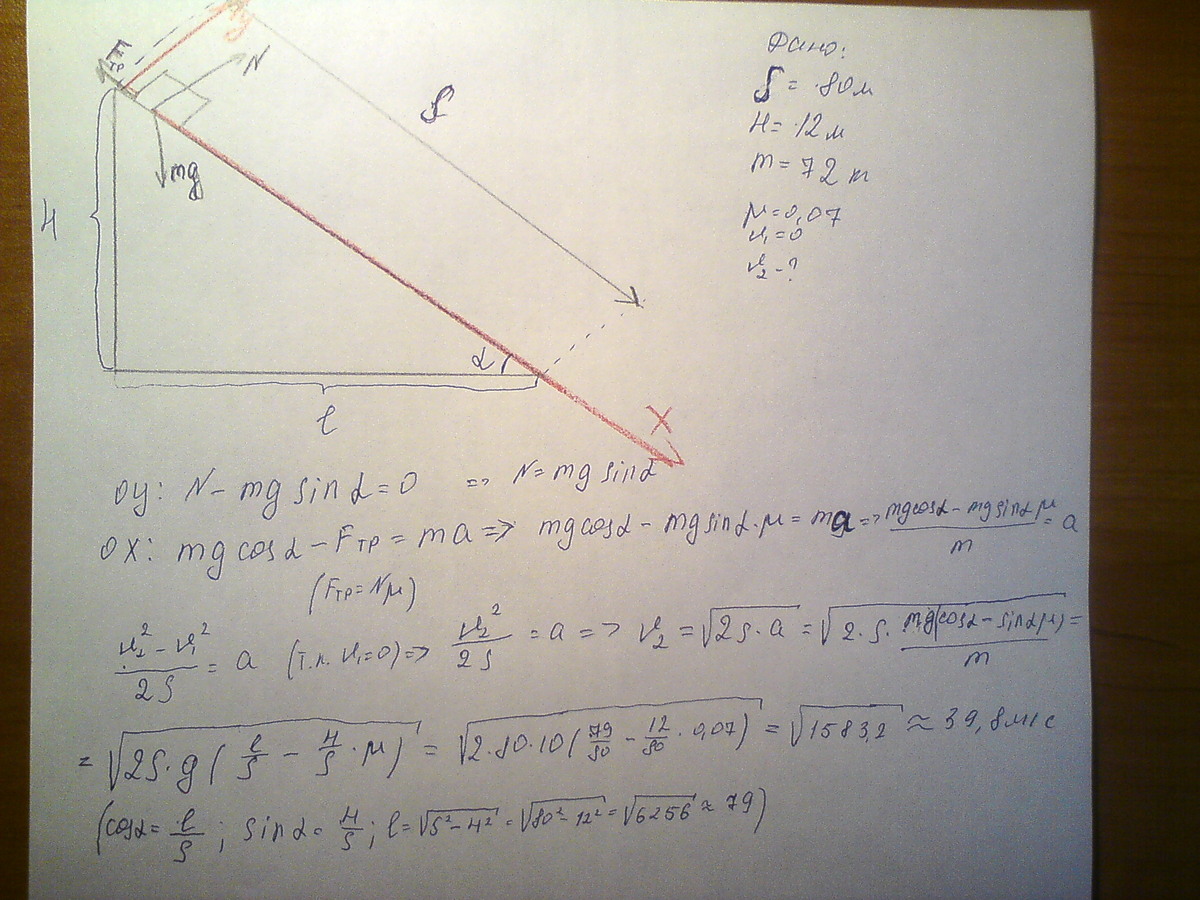 y
Fтр
N
S
mg
H
α
l
X
Дано:
S = 80м
H = 12м
m = 72 т
μ = 0,07
v₁ = 0
v₂ - ?
OY: N - mg sin α = 0 => N = mg sin α
OX: mg cos α - Fтр = ma => mg cos α - mg sin α · μ = ma => (mg cos α - mg sin α μ)/m = a
(Fтр = Nμ)
(v₂² - v₁²)/2S = a (т.к. v₁ = 0) => v₂²/2S = a => v₂ = √(2S·a) = √(2·S·mg(cos α - sin α μ)/m) =
= √(2S·g(l/S - H/S · μ)) = √(2·80·10(79/80 - 12/80 · 0,07)) = √1583,2 ≈ 39,8м/с
(cos α = l/S; sin α = H/S; l = √(S² - H²) = √(80² - 12²) = √6256 ≈ 79)